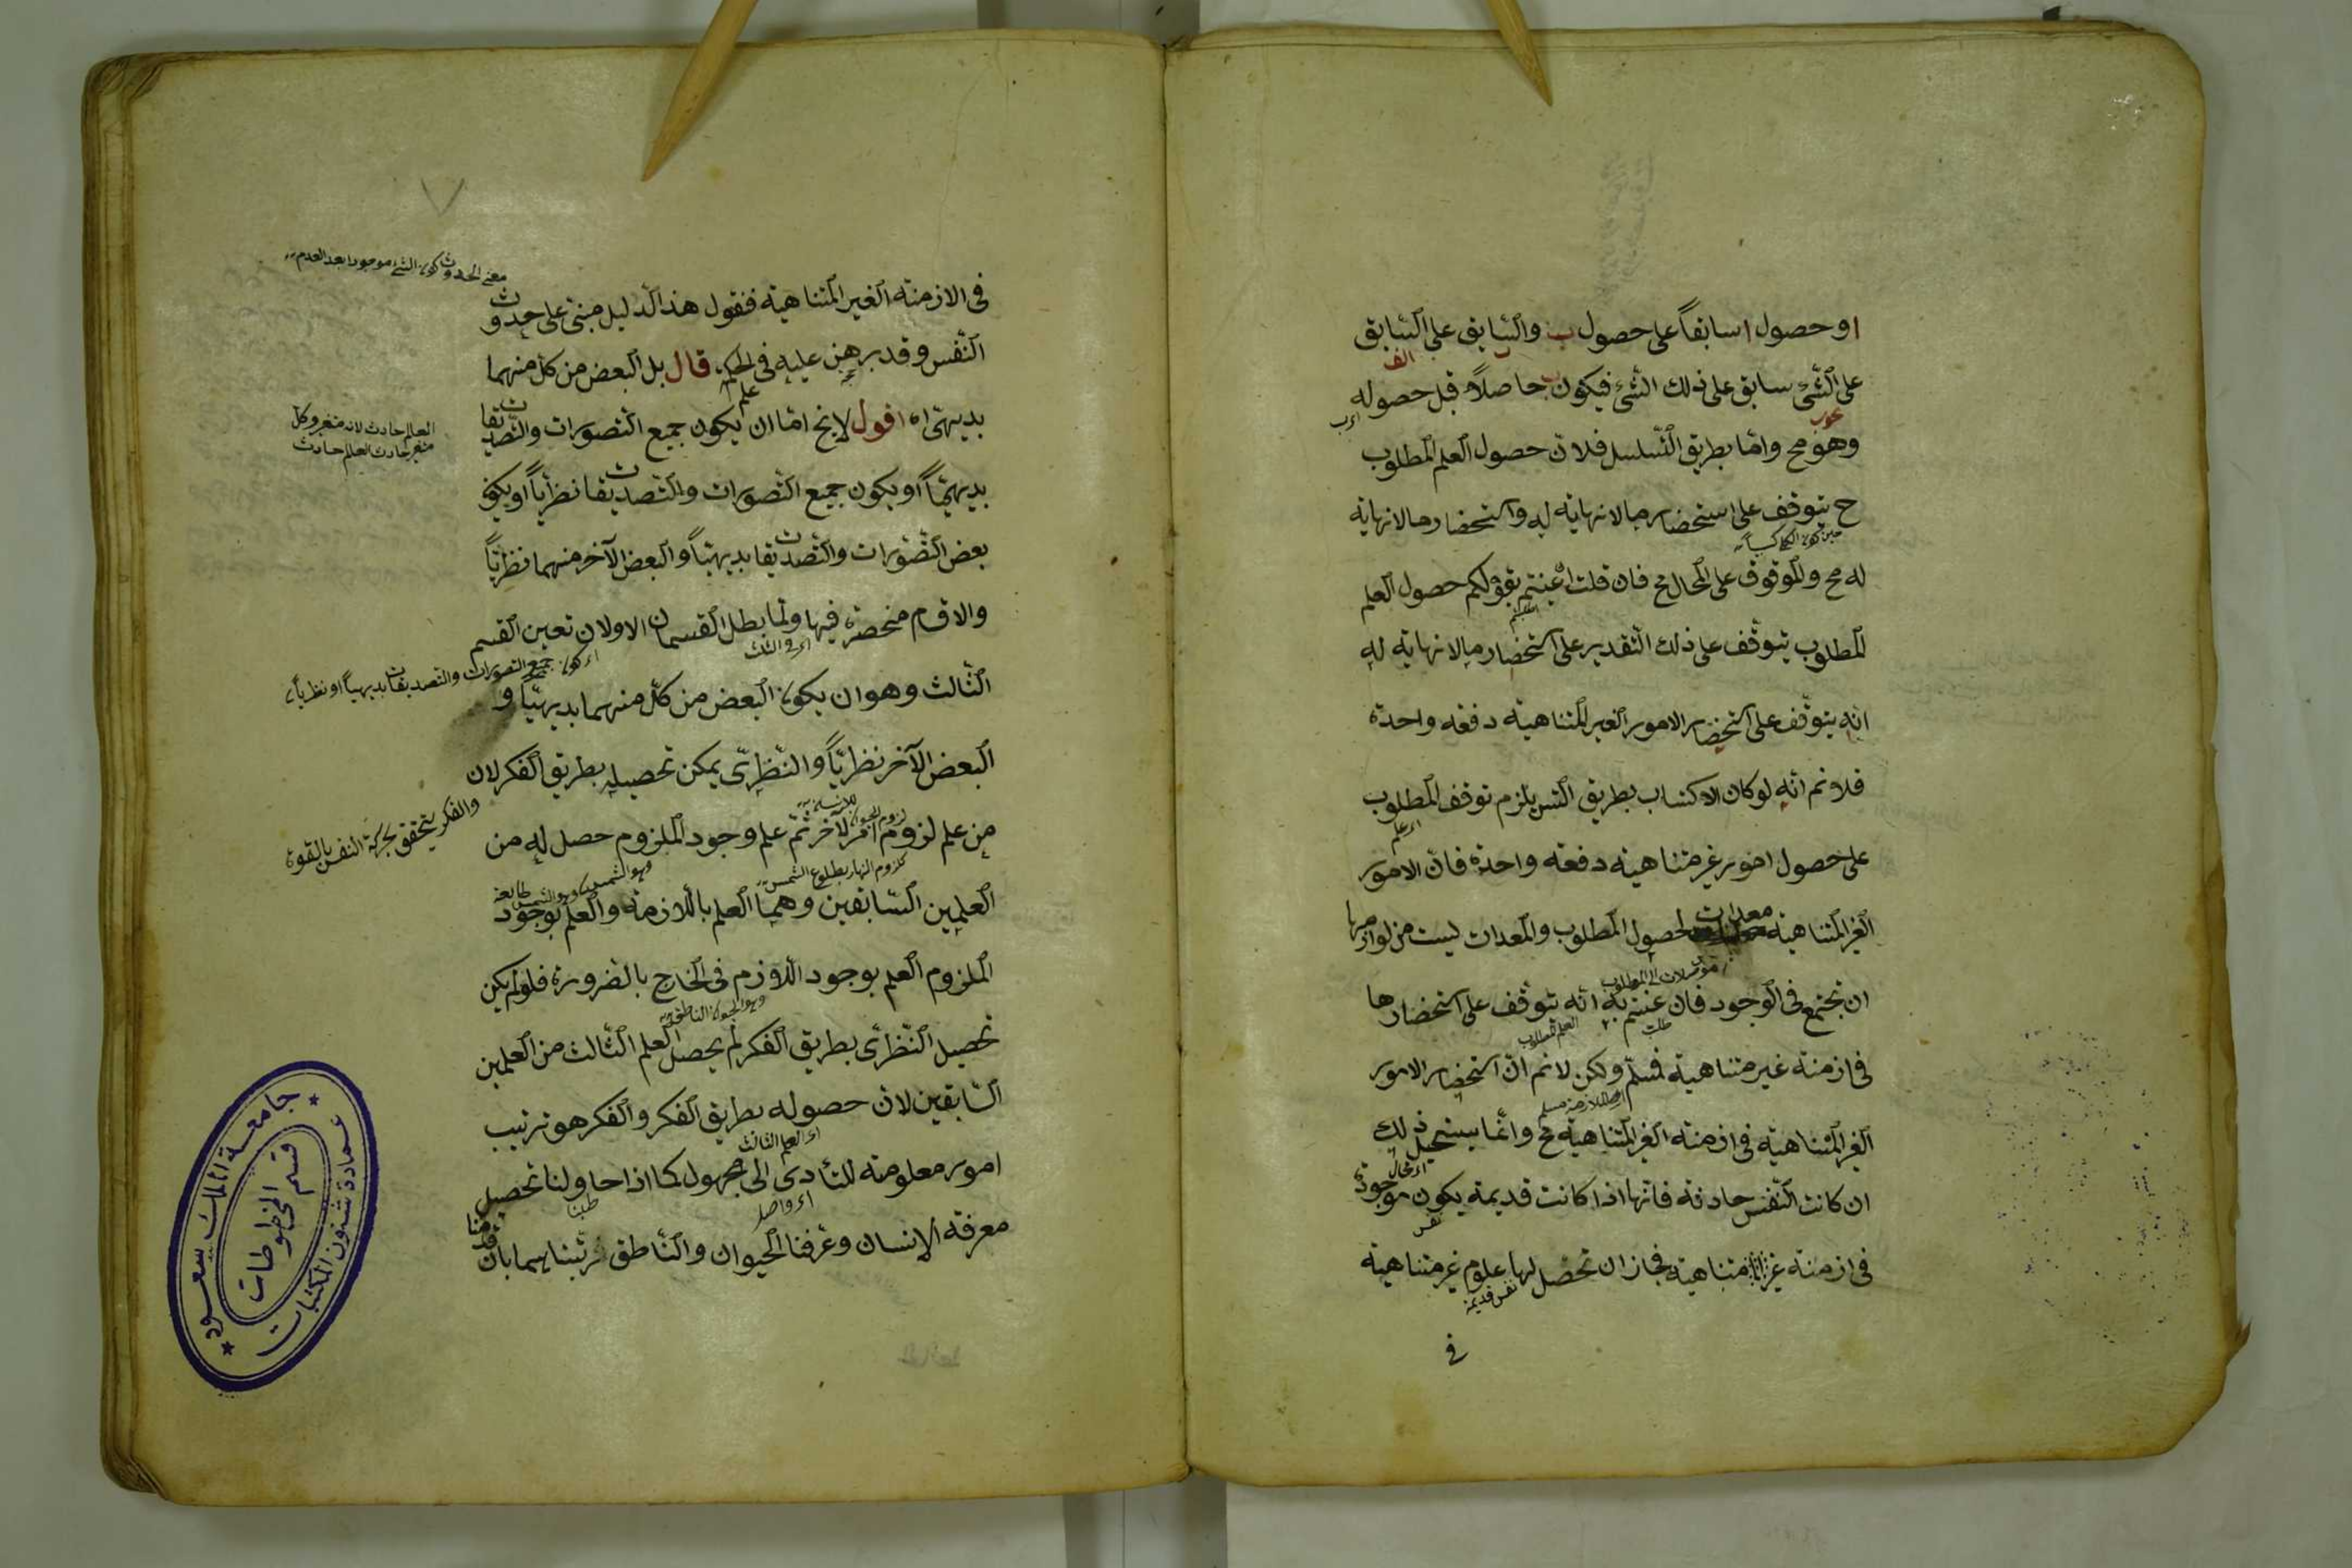 او حصول ا سابقاً على حصول ب والسابق على السابق
الف
على الشئ سابق على ذلك الشئ فيكون ب حاصلاً قبل حصوله
وهو مح واما بطريق التسلسل فلان حصول العلم المطلوب
ح يتوقف على استحضار ما لا نهاية له واستحضار ما لا نهاية
له مح والموقوف على المحال مح فان قلت ان عنيتم بقولكم حصول العلم
المطلوب يتوقف على ذلك التقدير على استحضار ما لا نهاية له
انه يتوقف على استحضار الامور الغير المتناهية دفعة واحدة
فلا نم انه لو كان الاكتساب بطريق التس يلزم توقف المطلوب
على حصول امور غير متناهية دفعة واحدة فان الامور
الغير المتناهية معدات لحصول المطلوب والمعدات ليست من لوازمها
موصلات الى المطلوب
ان تجتمع في الوجود فان عنيتم به انه يتوقف على استحضارها
في ازمنة غير متناهية فمسلم ولكن لا نم ان استحضار الامور
الغير المتناهية في ازمنة الغير المتناهية مح وانما يستحيل ذلك
ان كانت النفس حادثة فانها اذا كانت قديمة يكون موجودة
نفس
في ازمنة غير متناهية فجاز ان تحصل لها علوم غير متناهية
نفس قديمة
في
معنى الحدوث كون الشئ موجودا بعد العدم
في الازمنة الغير المتناهية فنقول هذا الدليل مبنى على حدوث
النفس وقد برهن عليه في الحكمة قال بل البعض من كل منهما
علم
بديهى اه اقول لا يخ اما ان يكون جميع التصورات والتصديقات
العالم حادث لانه متغير وكل
متغير حادث العالم حادث
بديهياً او يكون جميع التصورات والتصديقات نظرياً او يكون
بعض التصورات والتصديقات بديهياً والبعض الآخر منهما نظرياً
والاقسام منحصرة فيها ولما بطل القسمان الاولان تعين القسم
اى في الثلث
اى كون جميع التصورات والتصديقات بديهياً او نظرياً
الثالث وهو ان يكون البعض من كل منهما بديهياً و
البعض الآخر نظرياً والنظرى يمكن تحصيله بطريق الفكر لان
والفكر يتحقق بحركة النفس بالقوة
من علم لزوم امر لآخر ثم علم وجود الملزوم حصل له من
كلزوم النهار بطلوع الشمس
العلمين السابقين وهما العلم بالملازمة والعلم بوجود
الملزوم العلم بوجود اللازم في الخارج بالضرورة فلو لم يكن
تحصيل النظرى بطريق الفكر لم يحصل العلم الثالث من العلمين
السابقين لان حصوله بطريق الفكر والفكر هو ترتيب
اى العلم الثالث
امور معلومة للتأدى الى مجهول كما اذا حاولنا تحصيل
طلبنا
معرفة الإنسان وعرفنا الحيوان والناطق رتبناهما بان قدمنا
جامعة الملك سعود
عمادة شئون المكتبات
قسم المخطوطات